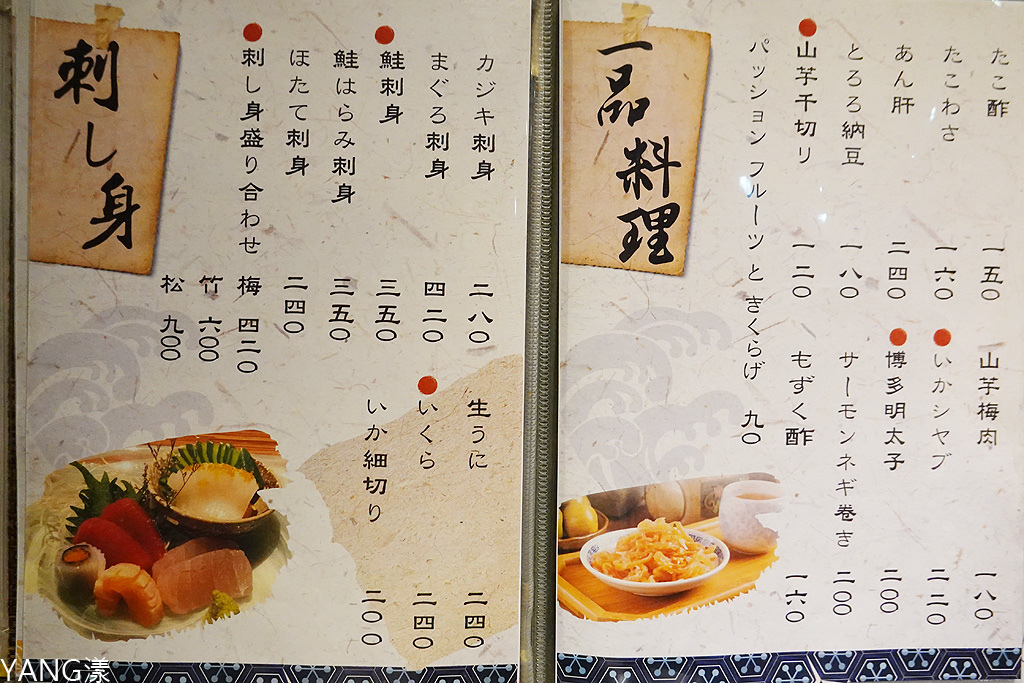 一品料理
たこ酢 一五〇
たこわさ 一六〇
あん肝 二四〇
とろろ納豆 一八〇
山芋千切り 一二〇
パッション フルーツ と きくらげ 九〇
山芋梅肉 一八〇
いかシャブ 二二〇
博多明太子 二〇〇
サーモンネギ巻き 二〇〇
もずく酢 一六〇
刺し身
カジキ刺身 二八〇
まぐろ刺身 四二〇
鮭刺身 三五〇
鮭はらみ刺身 三五〇
ほたて刺身 二四〇
刺し身盛り合わせ 梅 四二〇
竹 六〇〇
松 九〇〇
生うに 二四〇
いくら 二四〇
いか細切り 二〇〇
YANG漾